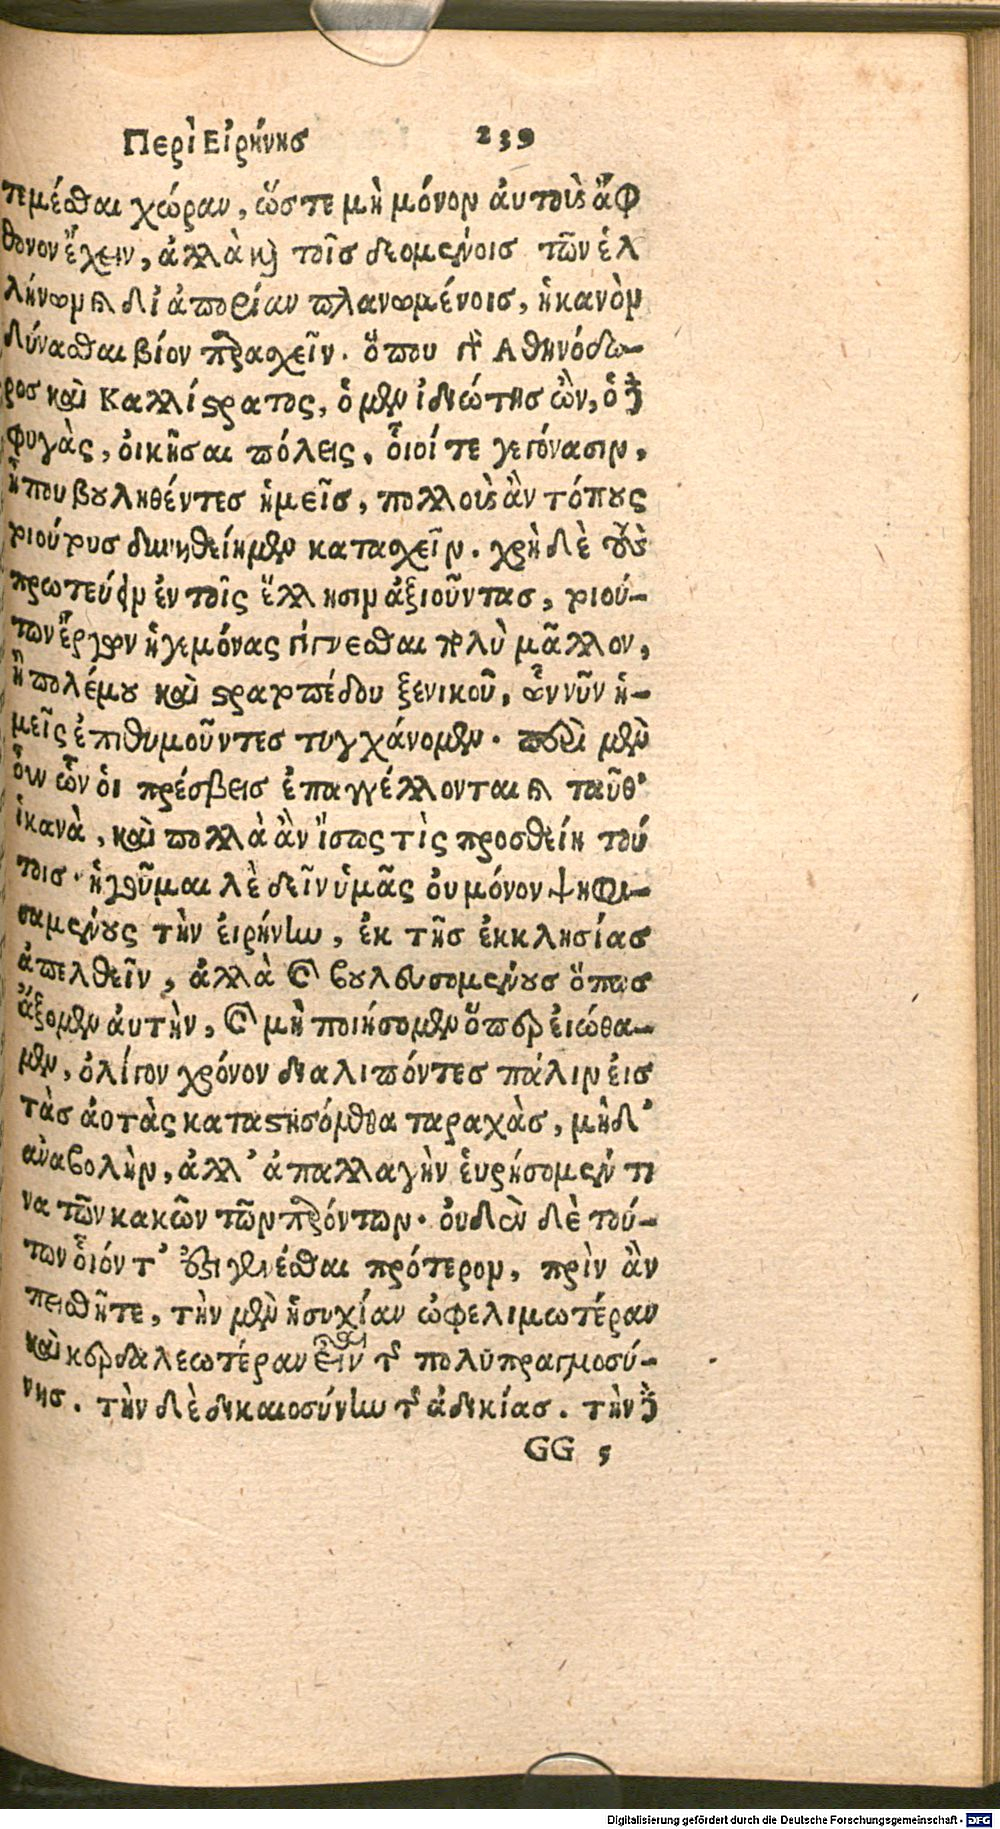 Περὶ Εἰρήνης 239
τεμέσθαι χώραν, ὥστε μὴ μόνον ἀυτοὺς ἄφ
θονον ἔχειν, ἀλλὰ καὶ τοῖς δεομένοις τῶν ἑλ
λήνων καὶ δἰ ἀπορίαν πλανωμένοις, ἡκανὸμ
δύνασθαι βίον παρασχεῖν. ὅπου γὰρ Αθηνόδω-
ρος καὶ Καλλίστρατος, ὁ μὲν ἰδιώτης ὢν, ὁ δὲ
φυγὰς, ὀικῆσαι πόλεις, ὗιοί τε γεγόνασιν,
ἦπου βουληθέντες ἡμεῖς, πολλοὺς ἂν τόπους
τοιούτους δυνηθείημεν κατασχεῖν. χρὴ δὲ τοὺς
πρωτεύειν ἐν τοῖς ἕλλησιν ἀξιοῦντας, τοιού-
των ἔργων ἡγεμόνας γίγνεσθαι πολὺ μᾶλλον,
ἢ πολέμου καὶ στρατοπέδου ξενικοῦ, ὧν νῦν ἡ-
μεῖς ἐπιθυμοῦντες τυγχάνομεν. περὶ μὲν
οὖν ὧν ὁι πρέσβεις ἐπαγγέλλονται καὶ ταῦθ'
ἱκανὰ, καὶ πολλὰ ἂν ἴσως τὶς προσθείη τού
τοις. ἡγοῦμαι δὲ δεῖν ὑμᾶς ὀυ μόνον ψηφι-
σαμένους τὴν ἐιρήνην, ἐκ τῆς ἐκκλησίας
ἀπελθεῖν, ἀλλὰ καὶ βουλευσομένους ὅπως
ἄξομεν ἀυτὴν, καὶ μὴ ποιήσομεν ὅπερ ἐιώθα-
μεν, ὀλίγον χρόνον διαλιπόντες πάλιν ἐις
τὰς ἀοτὰς καταστησόμεθα ταραχὰς, μηδ'
ἀναβολὴν, ἀλλ' ἀπαλλαγὴν ἑυρήσομέν τι
να τῶν κακῶν τῶν παρόντων. ὀυδὲν δὲ τού-
των ὗιόν τ' ἐστὶ γενέσθαι πρότερον, πρὶν ἂν
πεισθῆτε, τὴν μὲν ἡσυχίαν ὠφελιμωτέραν
καὶ κερδαλεωτέραν εἶναι τῆς πολυπραγμοσύ-
νης. τὴν δὲ δικαιοσύνην τῆς ἀδικίας. τὴν δὲ
GG 5
Digitalisierung gefördert durch die Deutsche Forschungsgemeinschaft - DFG